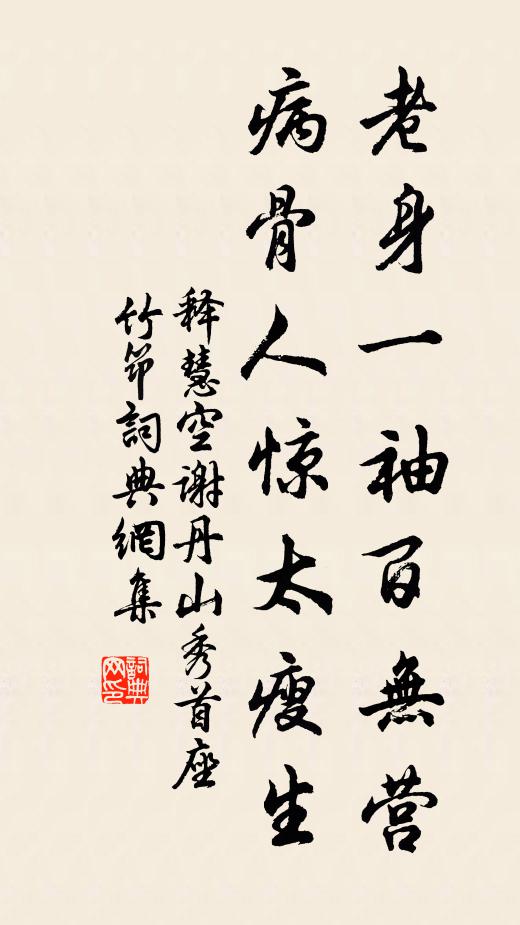 老身一袖百無营
病骨人惊太瘦生
释慧空谢丹山秀首座
竹节詞典網集
詞典
网印